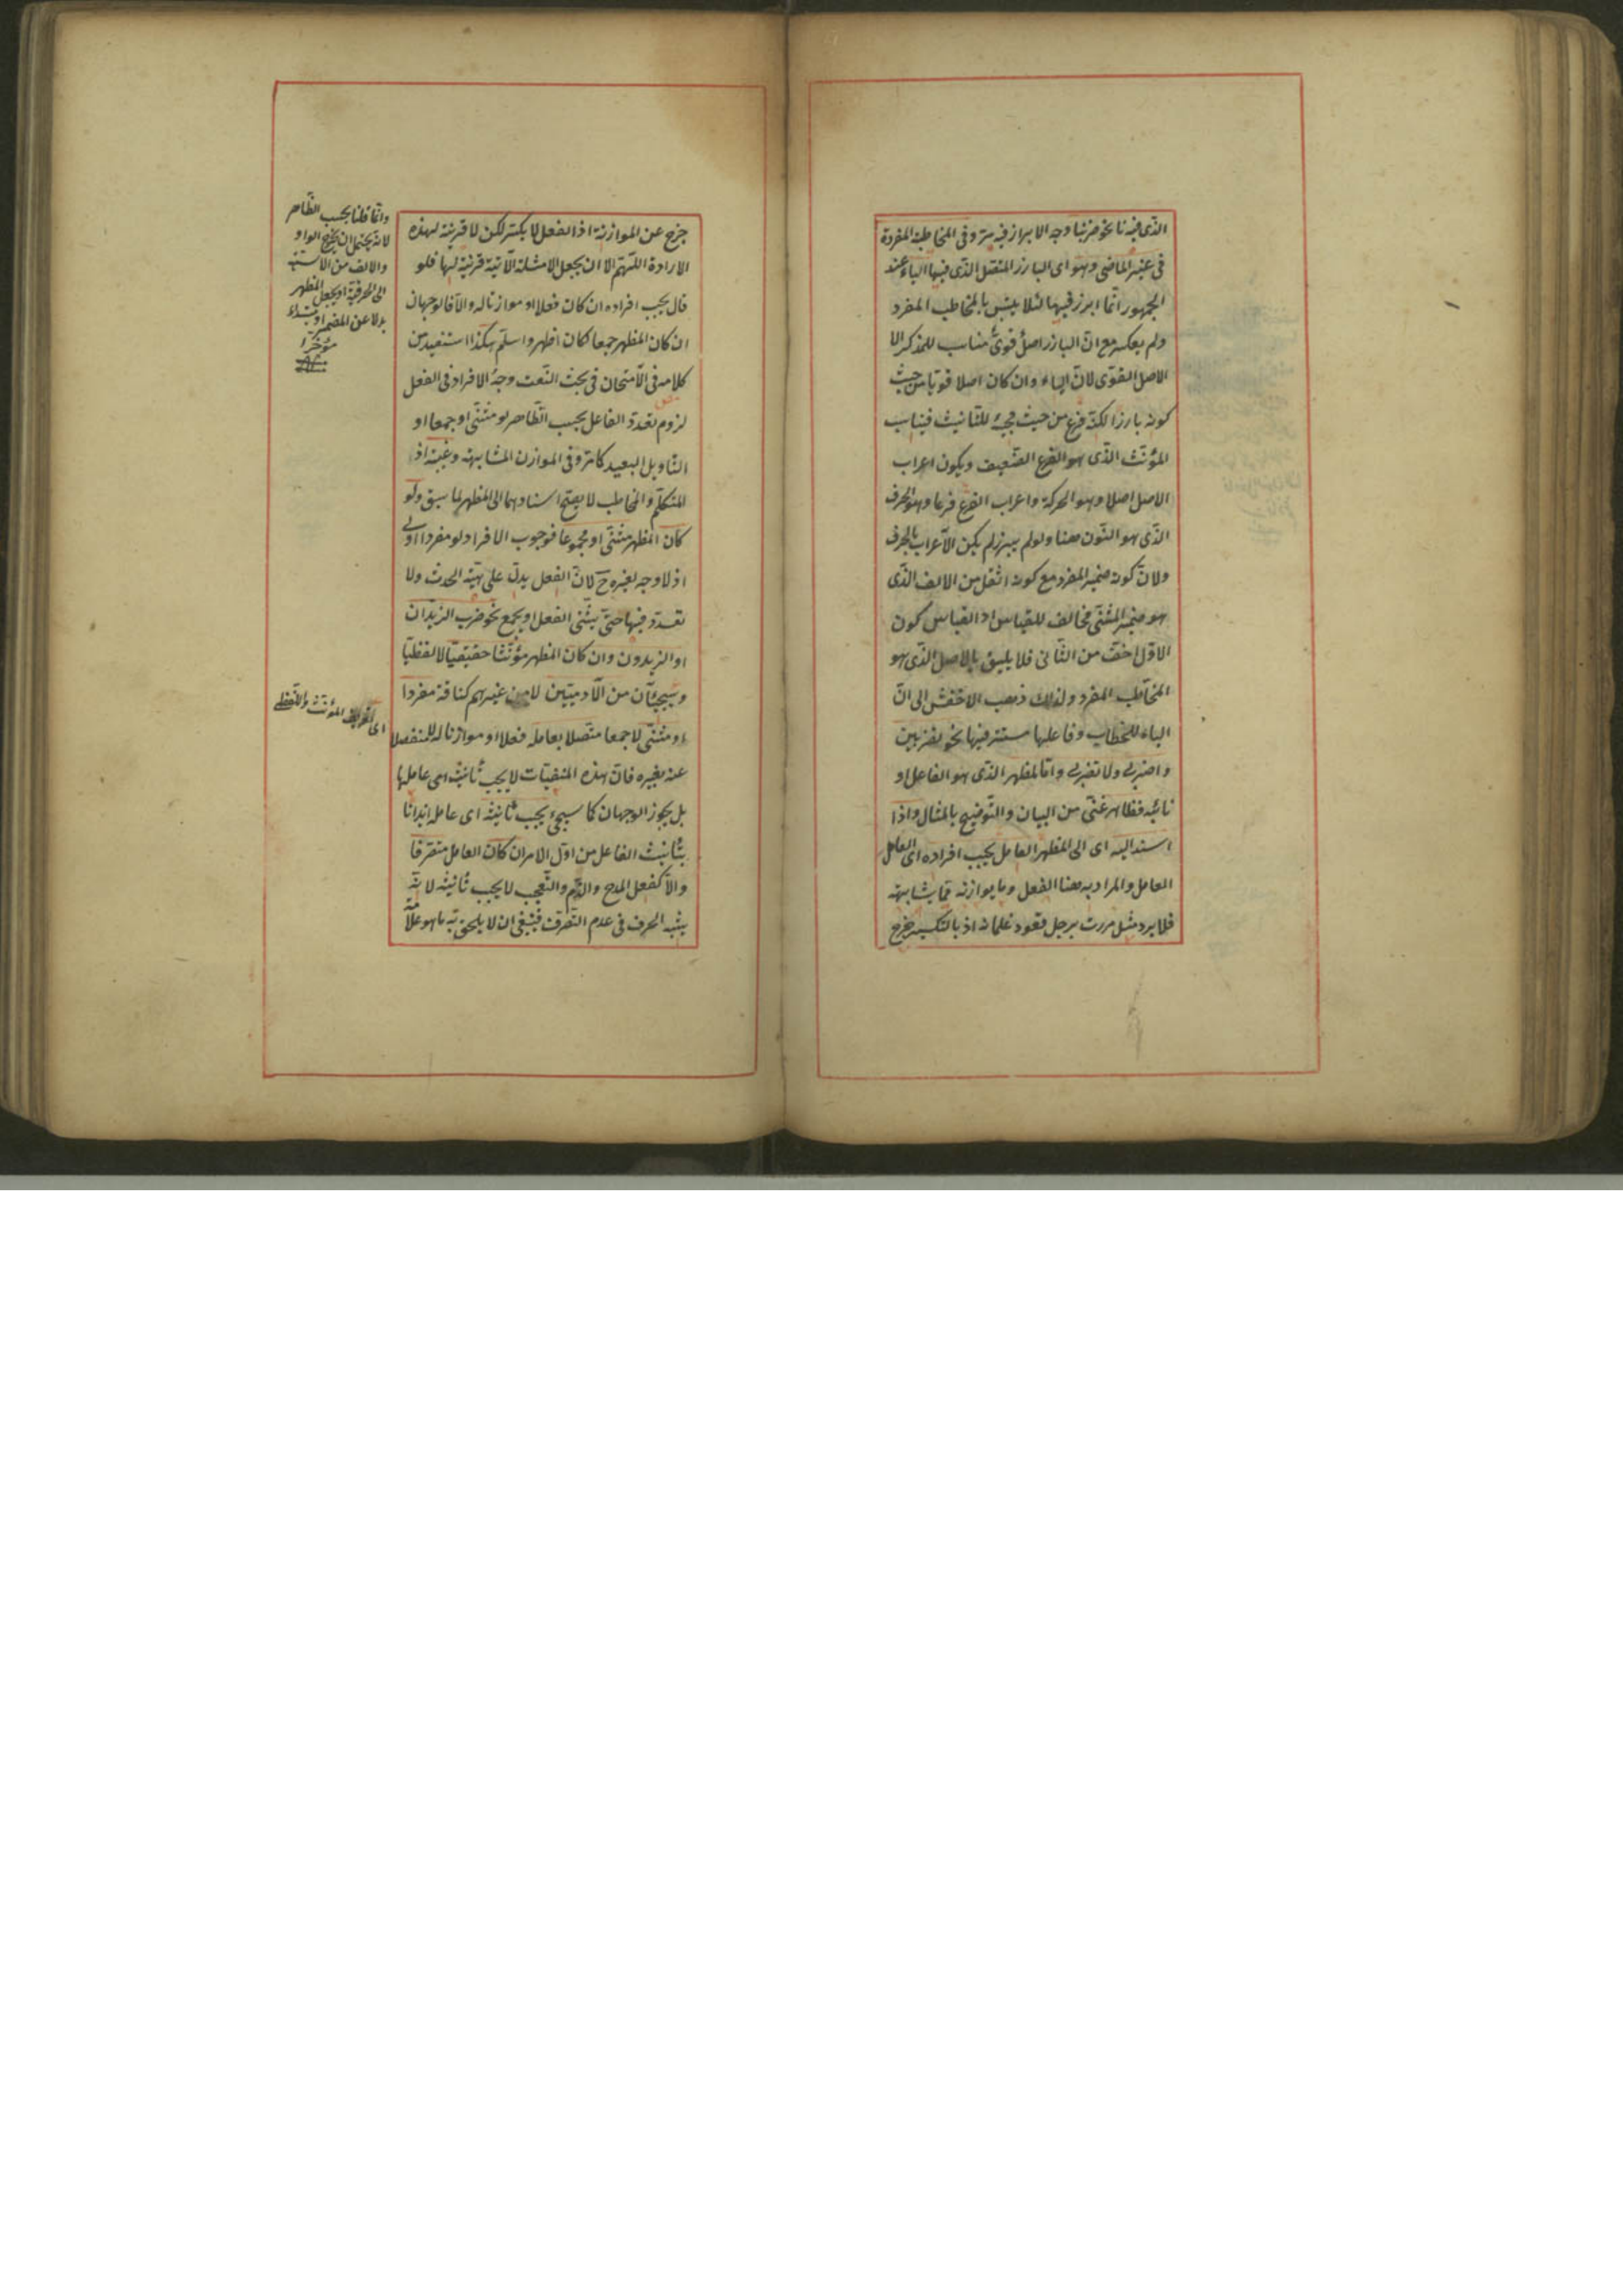 الذى فيه نا نحو ضربنا وجه الابراز فيه مرّ وفى المخاطبة المفردة
فى غير الماضى وهو اى البارز المتصل الذى فيها الياء عند
الجمهور انّما ابرز فيها لئلا يلتبس بالمخاطب المفرد
ولم يعكس مع انّ البارز اصل قوىّ مناسب للمذكر الا
الاصل القوّى لانّ الياء وان كان اصلا قويا من حيث
كونه بارزا لكنّه فرع من حيث مجيئه للتّانيث فيناسب
المؤنّث الذّى هو الفرع الضّعيف ويكون اعراب
الاصل اصلا وهو الحركة واعراب الفرع فرعا وهو الحرف
الذّى هو النّون هنا ولو لم يبرز لم يكن الاعراب بالحرف
ولانّ كونه ضمير المفرد مع كونه اثقل من الالف الذّى
هو ضمير المثنّى مخالف للقياس اذ القياس كون
الاوّل اخفّ من الثّانى فلا يليق بالاصل الذّى هو
المخاطب المفرد ولذلك ذهب الاخفش الى انّ
الياء للخطاب وفاعلها مستتر فيها نحو تضربين
واضربى ولا تضربى وامّا المظهر الذّى هو الفاعل او
نائبه فظاهر غنّى من البيان والتّوضيح بالمثال واذا
اسند اليه اى الى المظهر العامل يجب افراده اى العامل
العامل والمراد به هنا الفعل وما يوازنه ممّا يشابهه
فلا يرد مثل مررت برجل قعود غلمانه اذ بالتكسير خرج
خرج عن الموازنة اذ الفعل لا يكسّر لكن لا قرينة لهذه
الارادة اللّهمّ الا ان يجعل الامثلة الآتية قرينة لها فلو
قال يجب افراده ان كان فعلا او موازنا له والّا فالوجهان
ان كان المظهر جمعا لكان اظهر واسلم هكذا استفيد من
كلامه فى الامتحان فى بحث النّعت وجه الافراد فى الفعل
لزوم تعدّد الفاعل بحسب الظّاهر لو مثنّى او جمعا او
التّاويل البعيد كما مرّ وفى الموازن المشابهة وغيبة اذ
المتكلّم والمخاطب لا يصحّ اسنادهما الى المظهر لما سبق ولو
كان المظهر مثنّى او مجموعا فوجوب الافراد لو مفردا اولى
اذ لا وجه لغيره ح لانّ الفعل يدلّ على هيئة الحدث ولا
تعدّد فيها حتّى يثنّى الفعل او يجمع نحو ضرب الزّيدان
او الزّيدون وان كان المظهر مؤنّثا حقيقيّا لا لفظيّا
وسيجيئان من الآدميّين لا من غيرهم كناقة مفردا
او مثنّى لا جمعا متّصلا بعامله فعلا او موازنا له لا منفصلا
عنه بغيره فانّ هذه المنفيّات لا يجب تأنيث اى عاملها
بل يجوز الوجهان كما سيجىء يجب تأنيثه اى عامله ايذانا
بتأنيث الفاعل من اوّل الامر ان كان العامل متصرّفا
والّا كفعل المدح والذّم والتّعجب لا يجب تأنيثه لانّه
يشبه الحرف فى عدم التّصرف فينبغى ان لا يلحق به ما هو علامة
وانّما قلنا بحسب الظّاهر
لانّه يحتمل ان يخرج الواو
والالف من الاسميّة
الى الحرفيّة او يجعل المظهر
بدلا عن المضمر او مبتداء
مؤخّرا
منه
اى تعريف المؤنّث واللّفظى